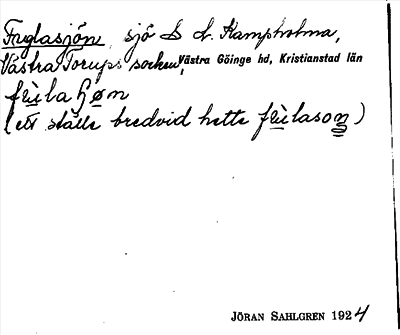 Fuglasjön, sjö S ch. Kampholma,
Västra Torups socken, Västra Göinge hd, Kristianstad län
fùlahøn
(ett ställe bredvid hette fùlason)
JÖRAN SAHLGREN 1924